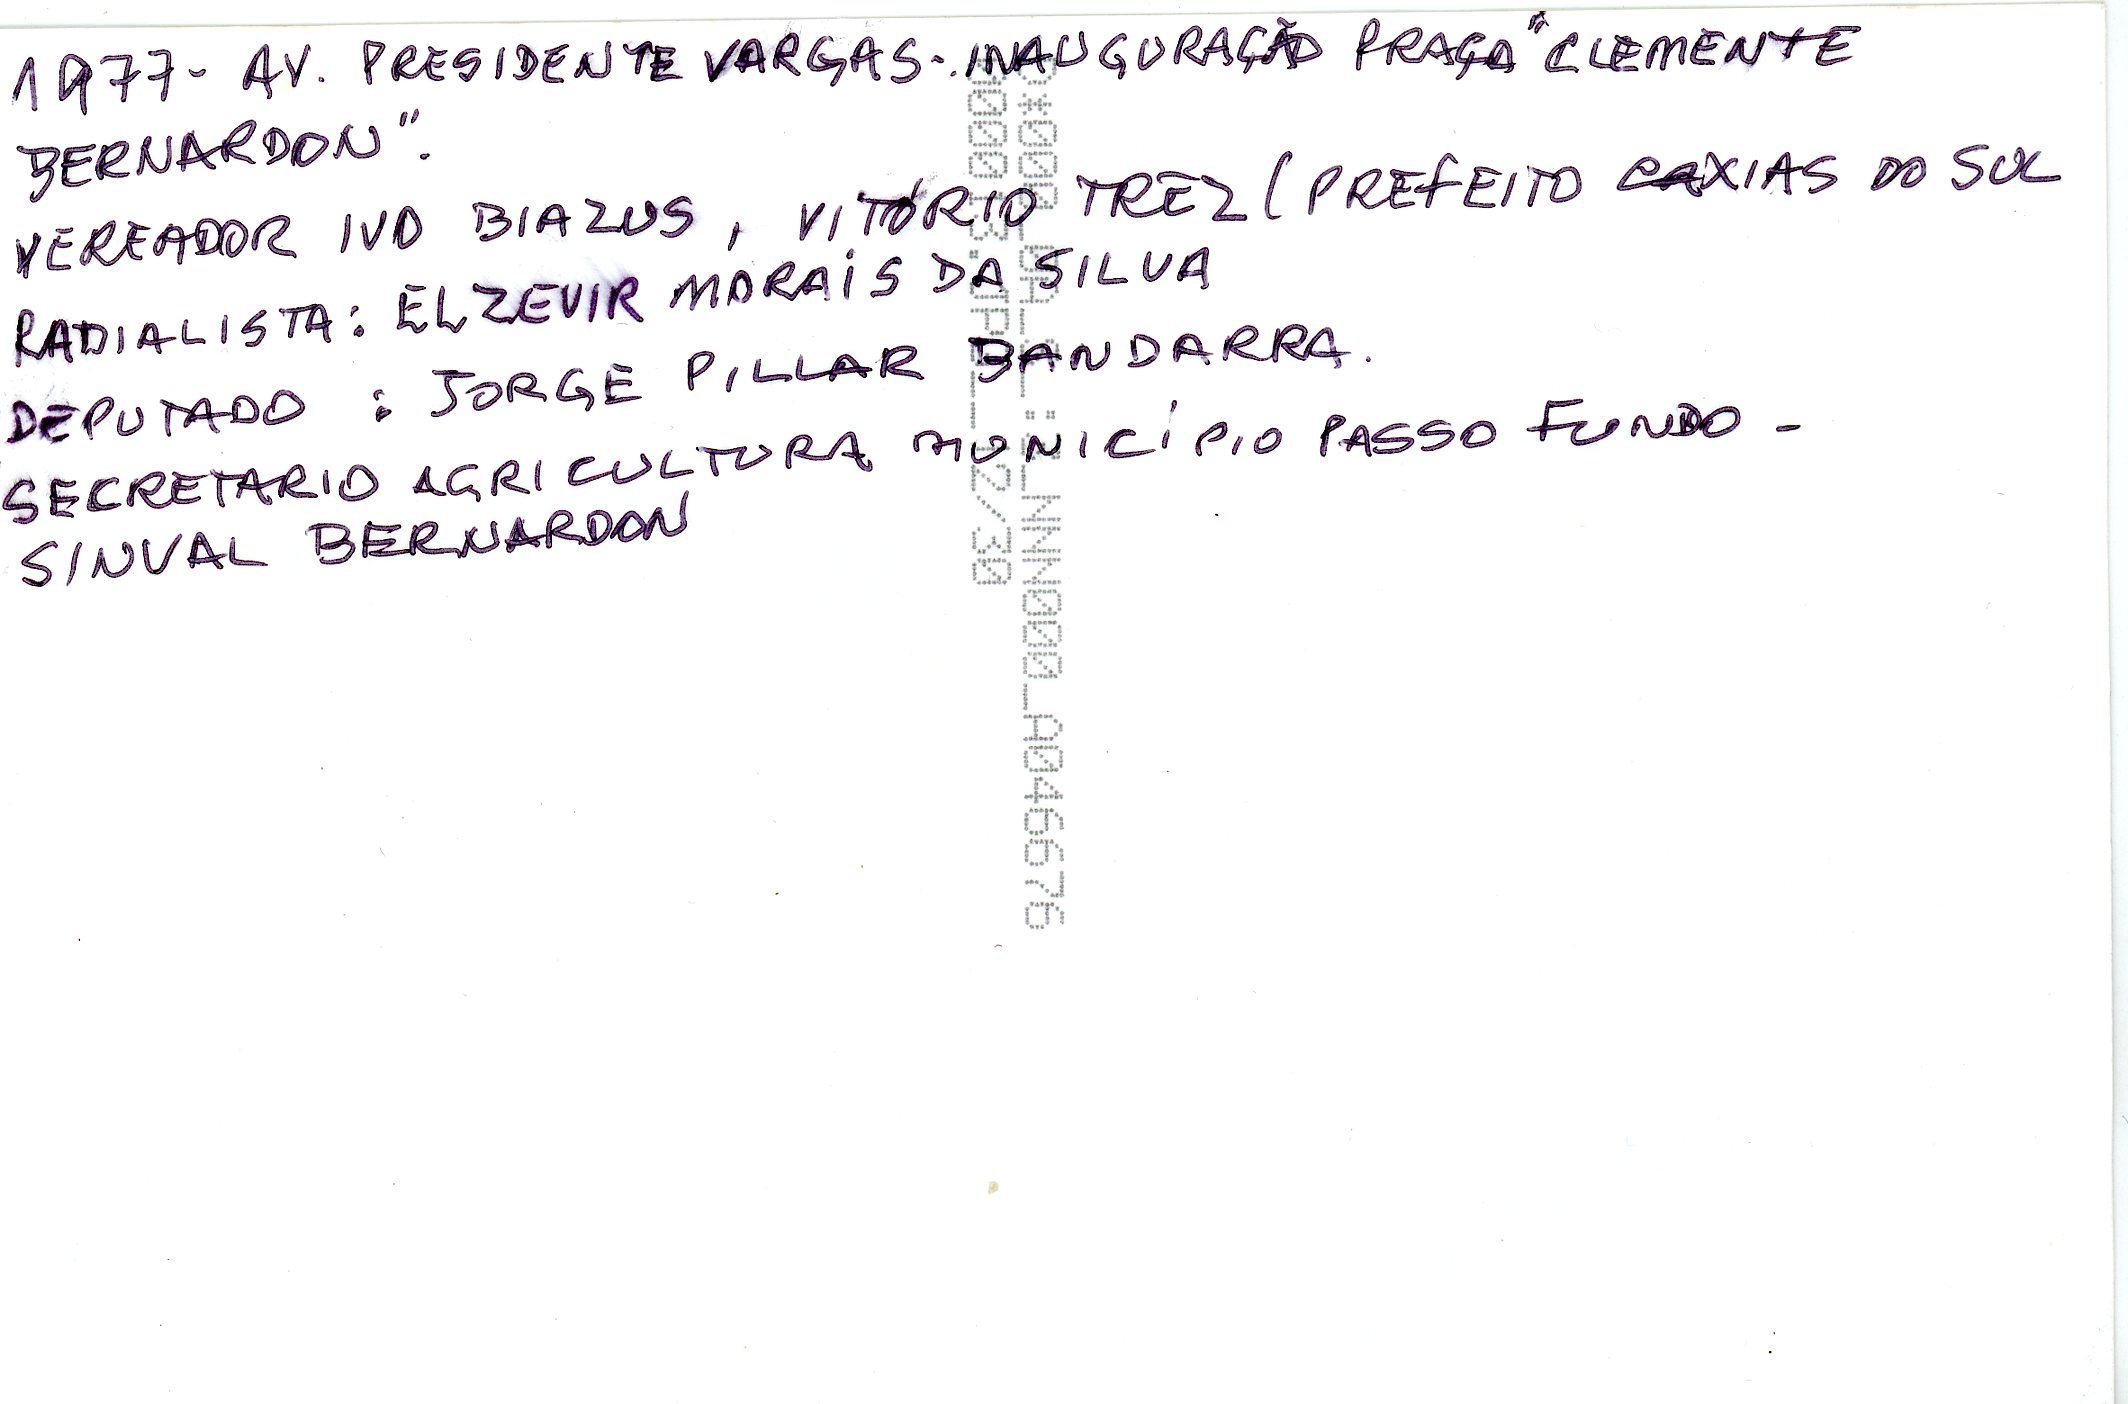 1977- AV. PRESIDENTE VARGAS-.INAUGURAÇÃO PRAÇA "CLEMENTE
BERNARDON".
VEREADOR IVO BIAZUS, VITÓRIO TREZ (PREFEITO CAXIAS DO SUL
RADIALISTA: ELZEVIR MORAIS DA SILVA
DEPUTADO : JORGE PILLAR BANDARRA.
SECRETARIO AGRICULTURA MUNICÍPIO PASSO FUNDO -
SINVAL BERNARDON